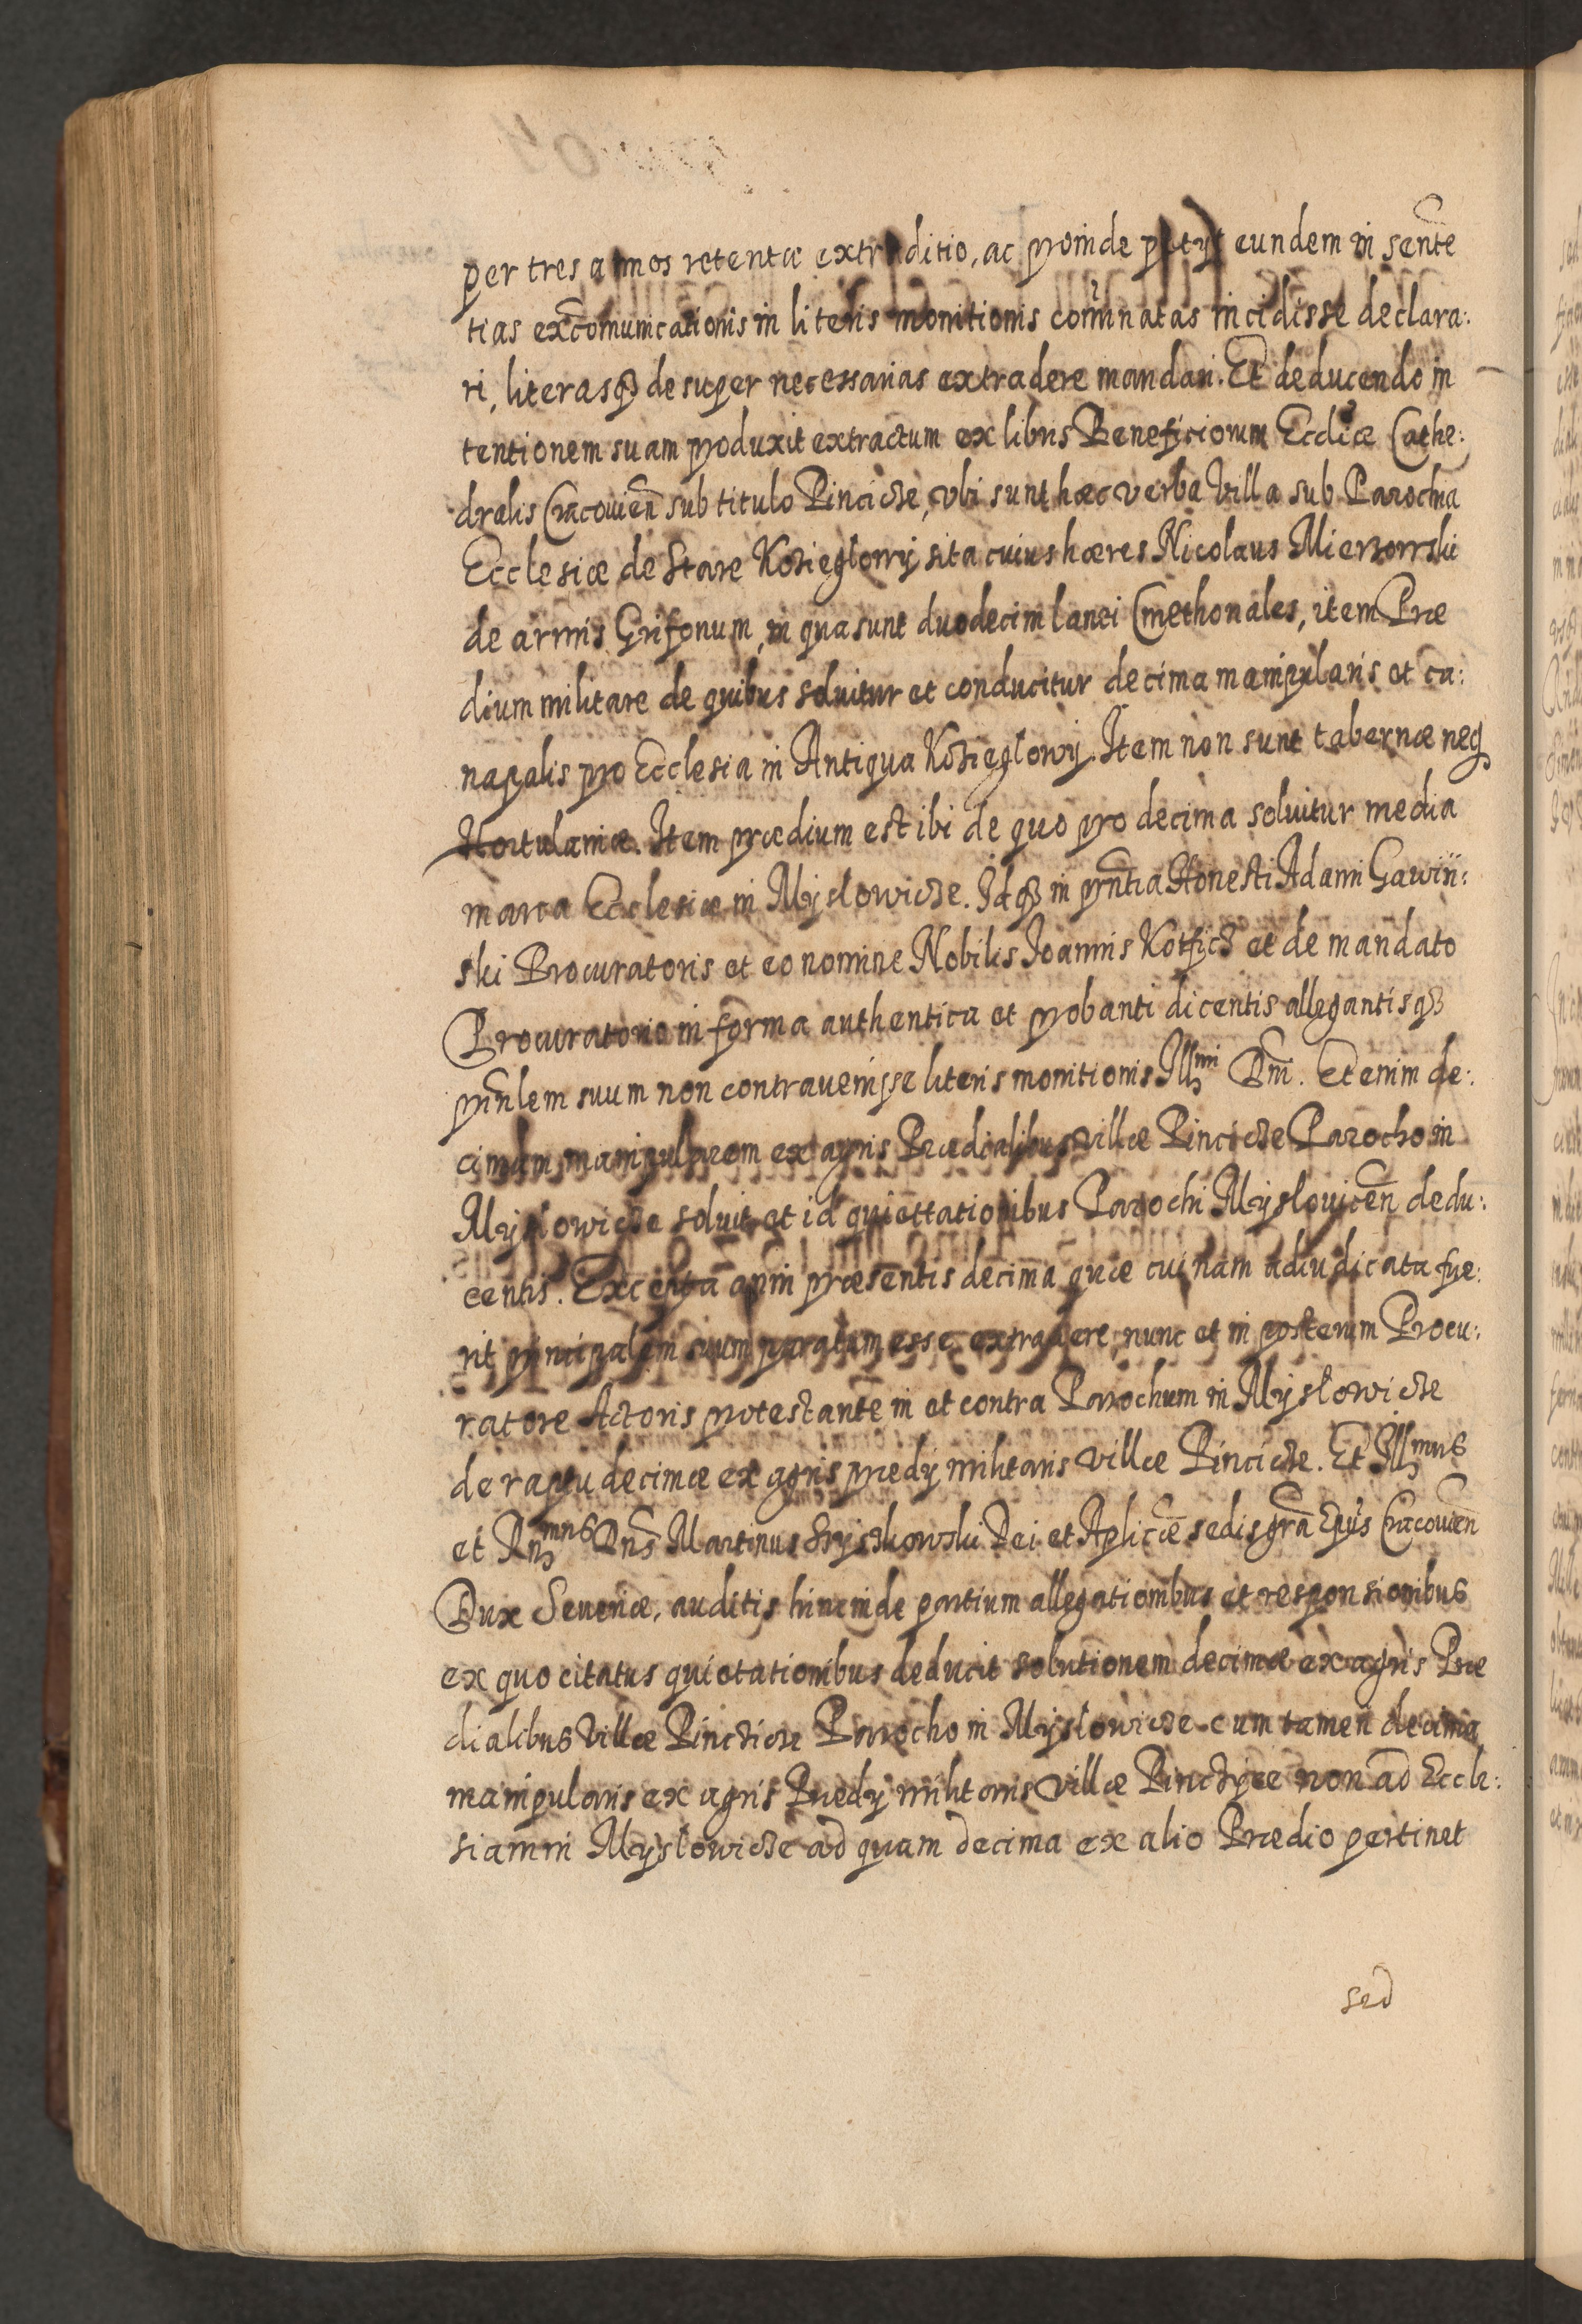 per tres annos retentæ extraditio, ac proinde petyt eundem in senten̄
tias excomunicationis in literis monitionis com̄inatas incidisse declara:
ri, literasq₃ desuper necessarias extradere mandari. Et deducendo in
tentionem suam produxit extractum ex libris Beneficiorum Eccliæ Cathe:
dralis Cracouien̄ sub titulo Pincicze, vbi sunt hæc verba Villa sub Parochia
Ecclesiæ de Stare Kozieglowy sita cuius hæres Nicolaus Mierzowski
de armis Grifonum, in qua sunt duodecim lanei Cmethonales, item Præ
dium militare de quibus soluitur et conducitur decima manipularis et ca:
napalis pro Ecclesia in Antiqua Kozieglowy. Item non sunt tabernæ neq₃
Hortulaniæ. Item prædium est ibi de quo pro decima soluitur media
marca Ecclesiæ in Mysłowicze. Idq₃ in pn̄tia Honesti Adami Gawiń:
ski Procuratoris et eo nomine Nobilis Joannis Kotficz et de mandato
Procuratorio in forma authentica et probanti dicentis allegantisq₃
prīnlem suum non contrauenisse literis monitionis Illmi Dn̄i. Etenim de:
cimam manipularem ex agris Prædialibus villæ Pincicze Parocho in
Mysłowicze soluit et id quiettationibus Parochi Mysłouicen̄ dedu:
centis. Excepta anni præsentis decima quæ cuinam adiudicata fue:
rit principalem suum paratum esse extradere, nunc et in posterum Procu:
ratore Actoris protestante in et contra Parochum in Mysłowicze
de raptu decimæ ex agris prædy militaris villæ Pincicze. Et Illmus
et Rn̄dmus Dn̄s Martinus Szyszkowski Dei et Aplicæ sedis grā Ep̄us Cracouien̄
Dux Seueriæ, auditis hincinde partium allegationibus et responsionibus
ex quo citatus quietationibus deducit solutionem decimæ ex agris Præ
dialibus Villæ Pinczicze Parocho in Mysłowicze cum tamen decima
manipularis ex agris Prædy militaris villæ Pinczyce non ad Eccle:
siam in Mysłowicze ad quam decima ex alio Prædio pertinet
sed